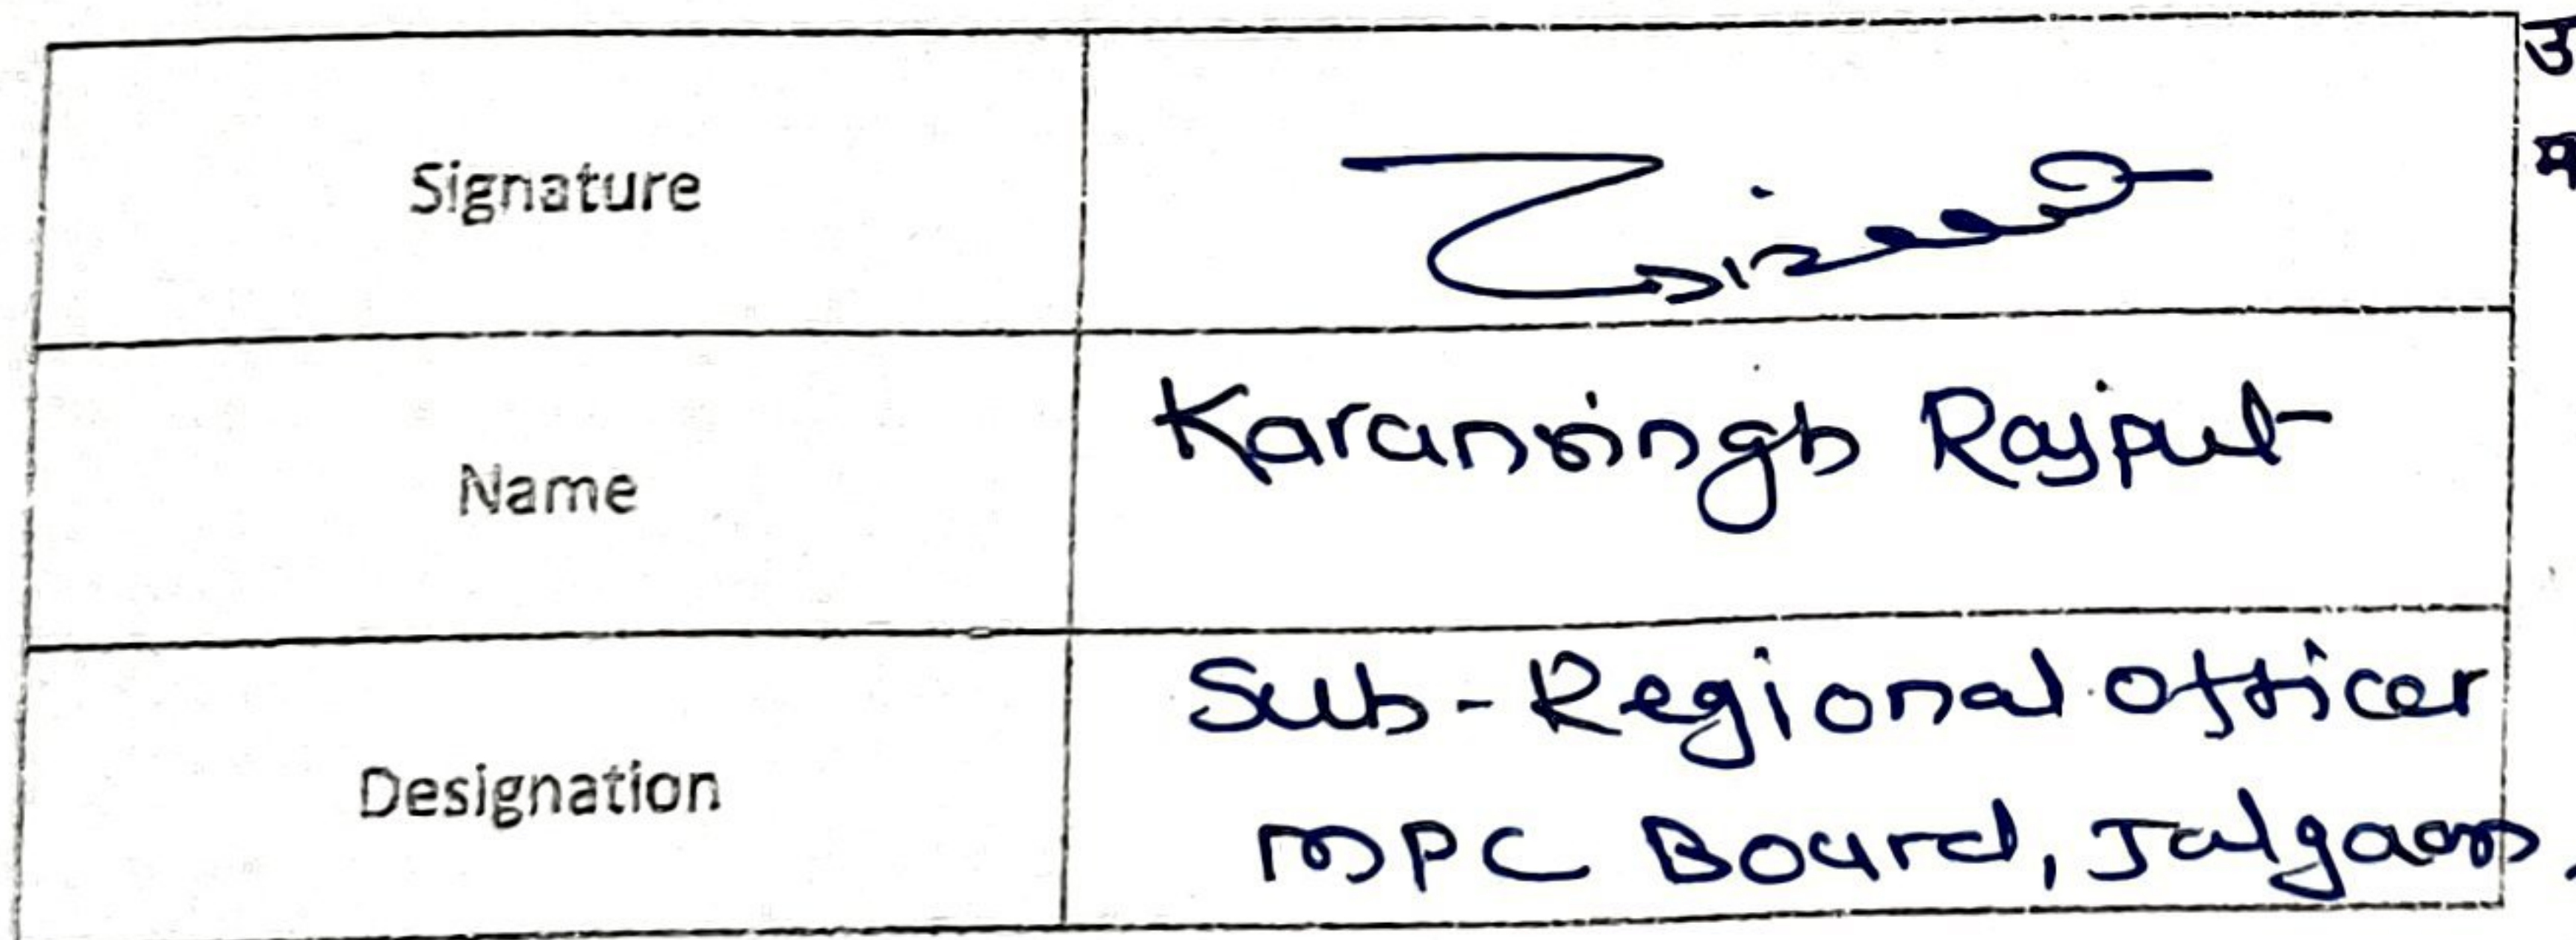 Signature
Name
Karansingh Rajput
Designation
Sub-Regional Officer
MPC Board, Jalgaon.